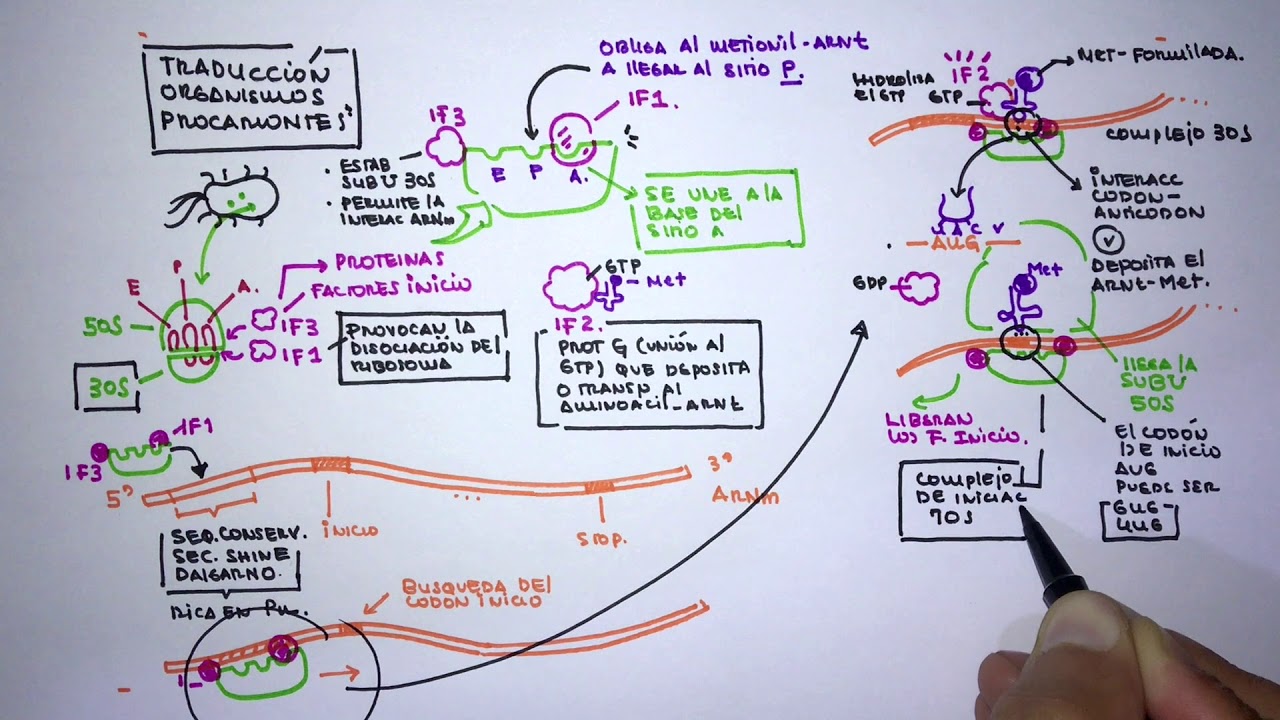 TRADUCCION
ORGANISMOS
PROCARIONTES
OBLIGA AL METIONIL-ARNt
A LLEGAR AL SITIO P.
IF1.
IF3
• ESTAB
SUBU 30S
• PERMITE LA
INTERAC ARNm
E P A.
SE UNE A LA
BASE DEL
SITIO A
PROTEINAS
FACTORES INICIO
P
E
A.
50S
30S
IF3
IF1
PROVOCAN LA
DISOCIACIÓN DEL
RIBOSOMA
GTP
Met
IF2.
PROT G (UNIÓN AL
GTP) QUE DEPOSITA
O TRANSP AL
AMINOACIL-ARNt
IF1
IF3
5'
3'
ARNm
...
INICIO
STOP.
SEQ.CONSERV.
SEC. SHINE
DALGARNO.
RICA EN PU.
BUSQUEDA DEL
CODON INICIO
IF2
MET-FORMILADA.
HIDROLISA
EL GTP
GTP
COMPLEJO 30S
INTERACC
CODON-
ANTICODON
UAC
AUG
DEPOSITA EL
ARNt-MET.
GDP
Met
LLEGA LA
SUBU
50S
LIBERAN
LOS F. INICIO.
COMPLEJO
DE INICIAC
70S
EL CODÓN
DE INICIO
AUG
PUEDE SER
GUG-
UUG